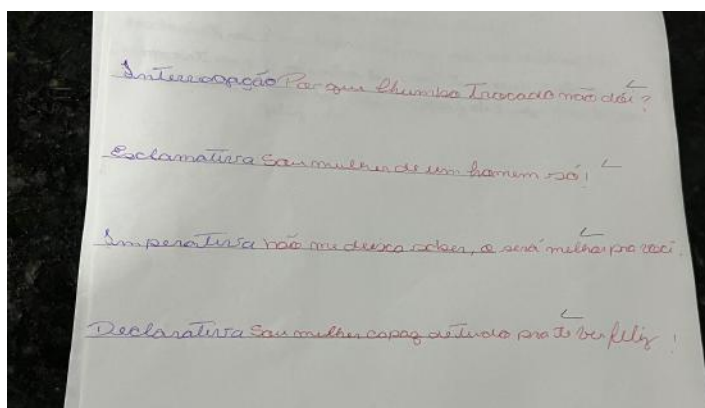 Interrogação Por que Chumbo Trocado não dói?
Esclamativa Sou mulher de um homem só!
Imperativa não me deixa saber, e será melhor pra você.
Declarativa Sou mulher capaz de tudo pra te ver feliz!